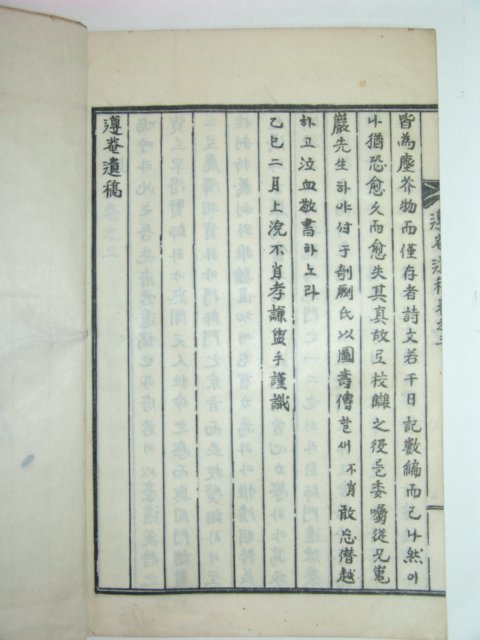 遵菴遺稿卷之三
皆為塵芥物而僅存者詩文若干日記數編而已나然이
나猶恐愈久而愈失其真故로校讎之後是委囑從兄寬
嚴先生하야付于剞劂氏以圖壽傳할새不肖敢忘僭越
하고泣血敬書하노라
乙巳二月上浣不肖孝謙盥手謹識
遵菴遺稿